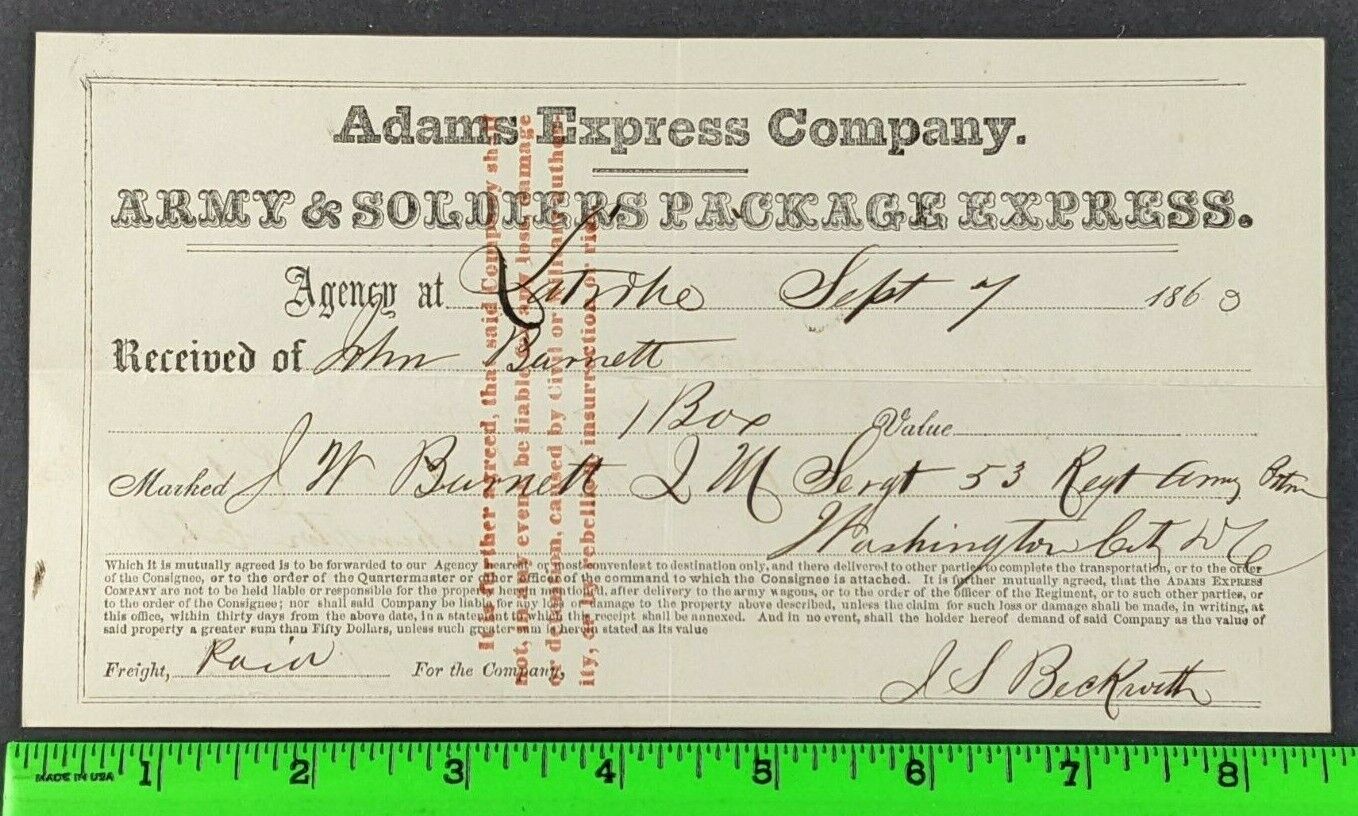 Adams Express Company.
ARMY & SOLDIERS PACKAGE EXPRESS.
Agency at Sept 7 1863
Received of John Burnett
1 Box Value
Marked J W Burnett Q M Sergt 53 Regt
Washington City D C
Which it is mutually agreed is to be forwarded to our Agency nearest or most convenient to destination only, and there delivered to other parties to complete the transportation, or to the order
of the Consignee, or to the order of the Quartermaster or other officer of the command to which the Consignee is attached. It is further mutually agreed, that the ADAMS EXPRESS
COMPANY are not to be held liable or responsible for the property herein mentioned, after delivery to the army wagons, or to the order of the officer of the Regiment, or to such other parties, or
to the order of the Consignee; nor shall said Company be liable for any loss or damage to the property above described, unless the claim for such loss or damage shall be made, in writing, at
this office, within thirty days from the above date, in a statement to which this receipt shall be annexed. And in no event, shall the holder hereof demand of said Company as the value of
said property a greater sum than Fifty Dollars, unless such greater sum is herein stated as its value
Freight, Paid For the Company,
J S Beckwith
It is further agreed, that said Company shall
not, in any event, be liable for any loss, damage
or detention, caused by Civil or Military author-
ity, or by rebellion, insurrection or riot.
MADE IN USA 1 2 3 4 5 6 7 8